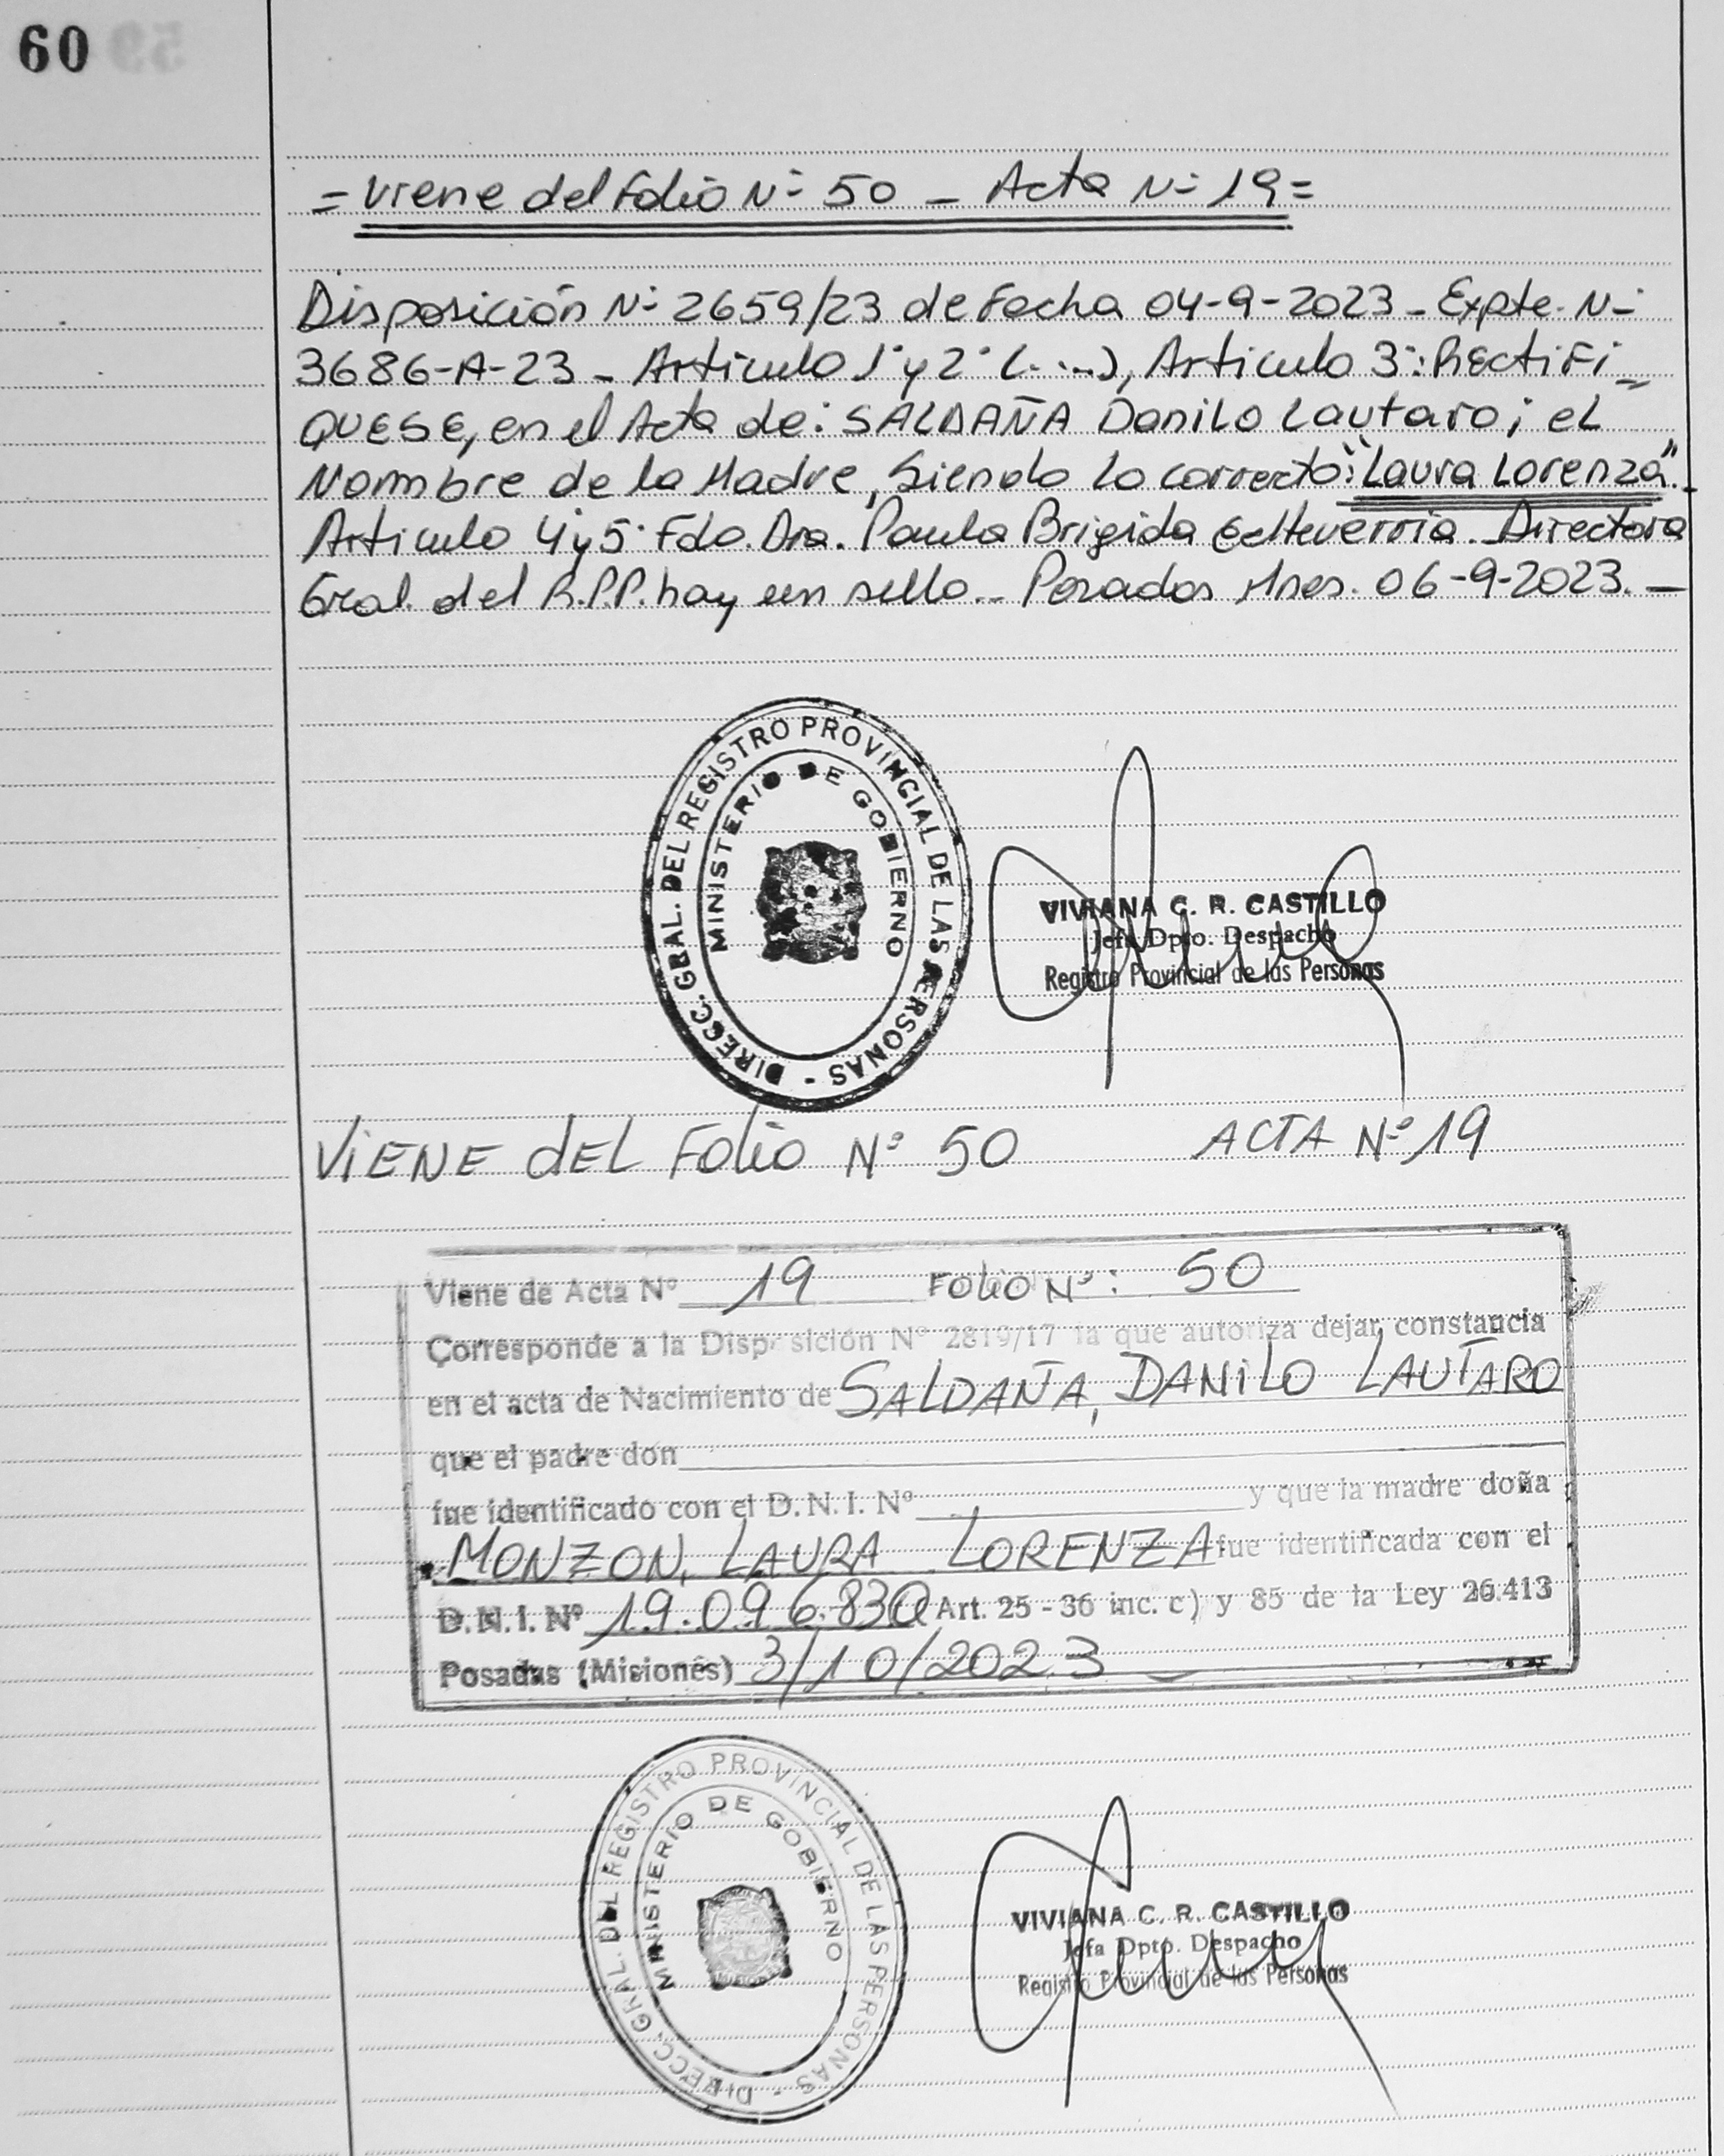 60
= Viene del Folio Nº 50 - Acta Nº 19 =
Disposición Nº 2659/23 de Fecha 04-9-2023 - Expte. Nº
3686-A-23 - Artículo 1º y 2º (...), Artículo 3º: RECtiFi-
QUESE, en el Acta de: SALDAÑA Danilo Lautaro; el
Nombre de la Madre, Siendo lo correcto: "Laura Lorenza".
Artículo 4 y 5º Fdo. Dra. Paula Brigida Echeverria. Directora
Gral. del R.P.P. hay un sello - Posadas Mnes. 06-9-2023. -
DIRECC. GRAL. DEL REGISTRO PROVINCIAL DE LAS PERSONAS -
MINISTERIO DE GOBIERNO
VIVIANA C. R. CASTILLO
Jefa Dpto. Despacho
Registro Provincial de las Personas
ViENE dEL FOLiO Nº 50 ACTA Nº 19
Viene de Acta Nº 19 FOLiO Nº: 50
Corresponde a la Disposición Nº 2819/17 la que autoriza dejar constancia
en el acta de Nacimiento de SALDAÑA, DANiLO LAUTARO
que el padre don
fue identificado con el D.N.I. Nº y que la madre doña
MONZON, LAURA LORENZA fue identificada con el
D.N.I. Nº 19.096.830 Art. 25 - 36 inc. c) y 85 de la Ley 26.413
Posadas (Misiones) 3/10/2023
DIRECC. GRAL. DEL REGISTRO PROVINCIAL DE LAS PERSONAS -
MINISTERIO DE GOBIERNO
VIVIANA C. R. CASTILLO
Jefa Dpto. Despacho
Registro Provincial de las Personas